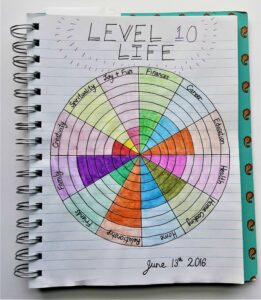 LEVEL 10
LIFE
Finances
Career
Education
Health
Home Cooking
Home
Relationship
Friends
Family
Creativity
Spirituality
Joy + Fun
June 13th 2016